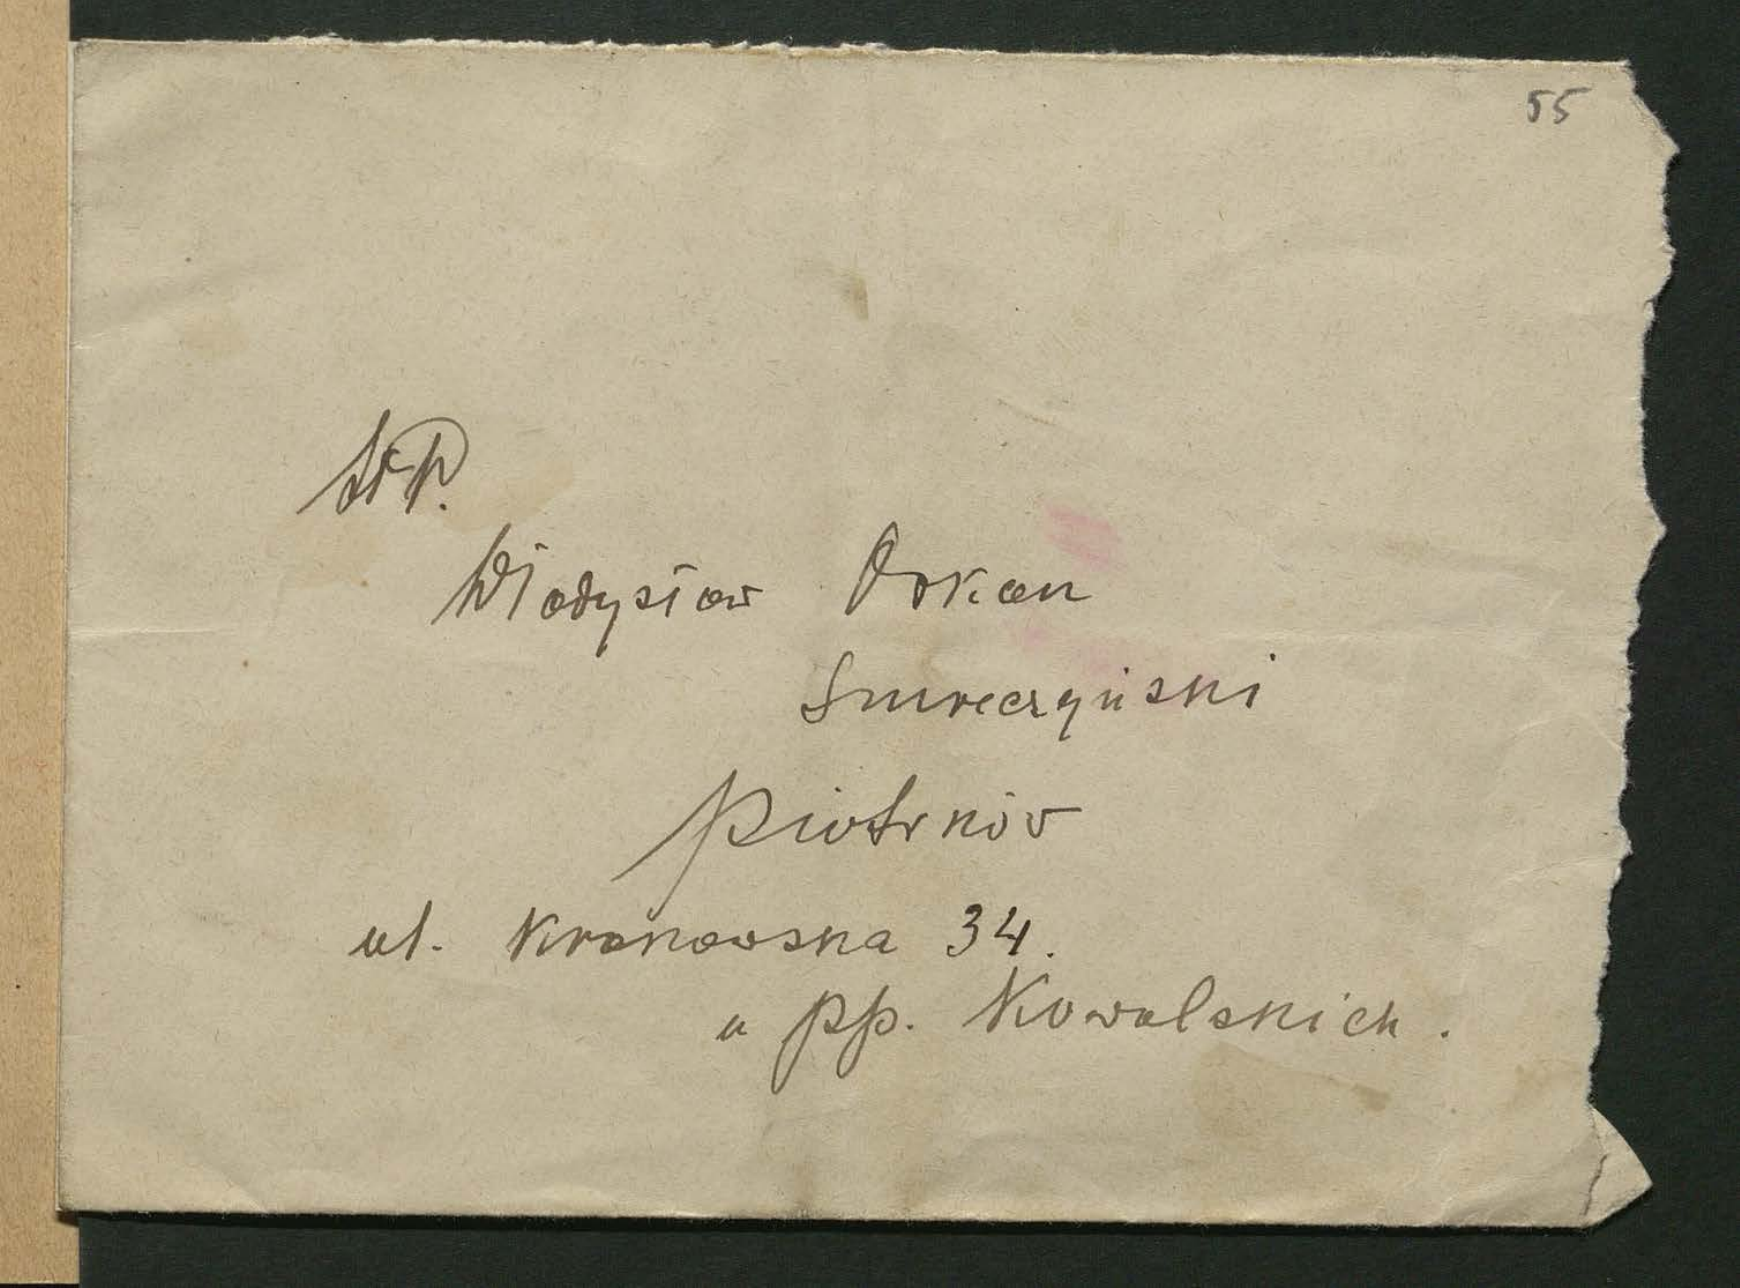 55
WP.
Władysław Orkan
Smreczyński
Piotrków
ul. Krakowska 34.
u pp. Kowalskich.